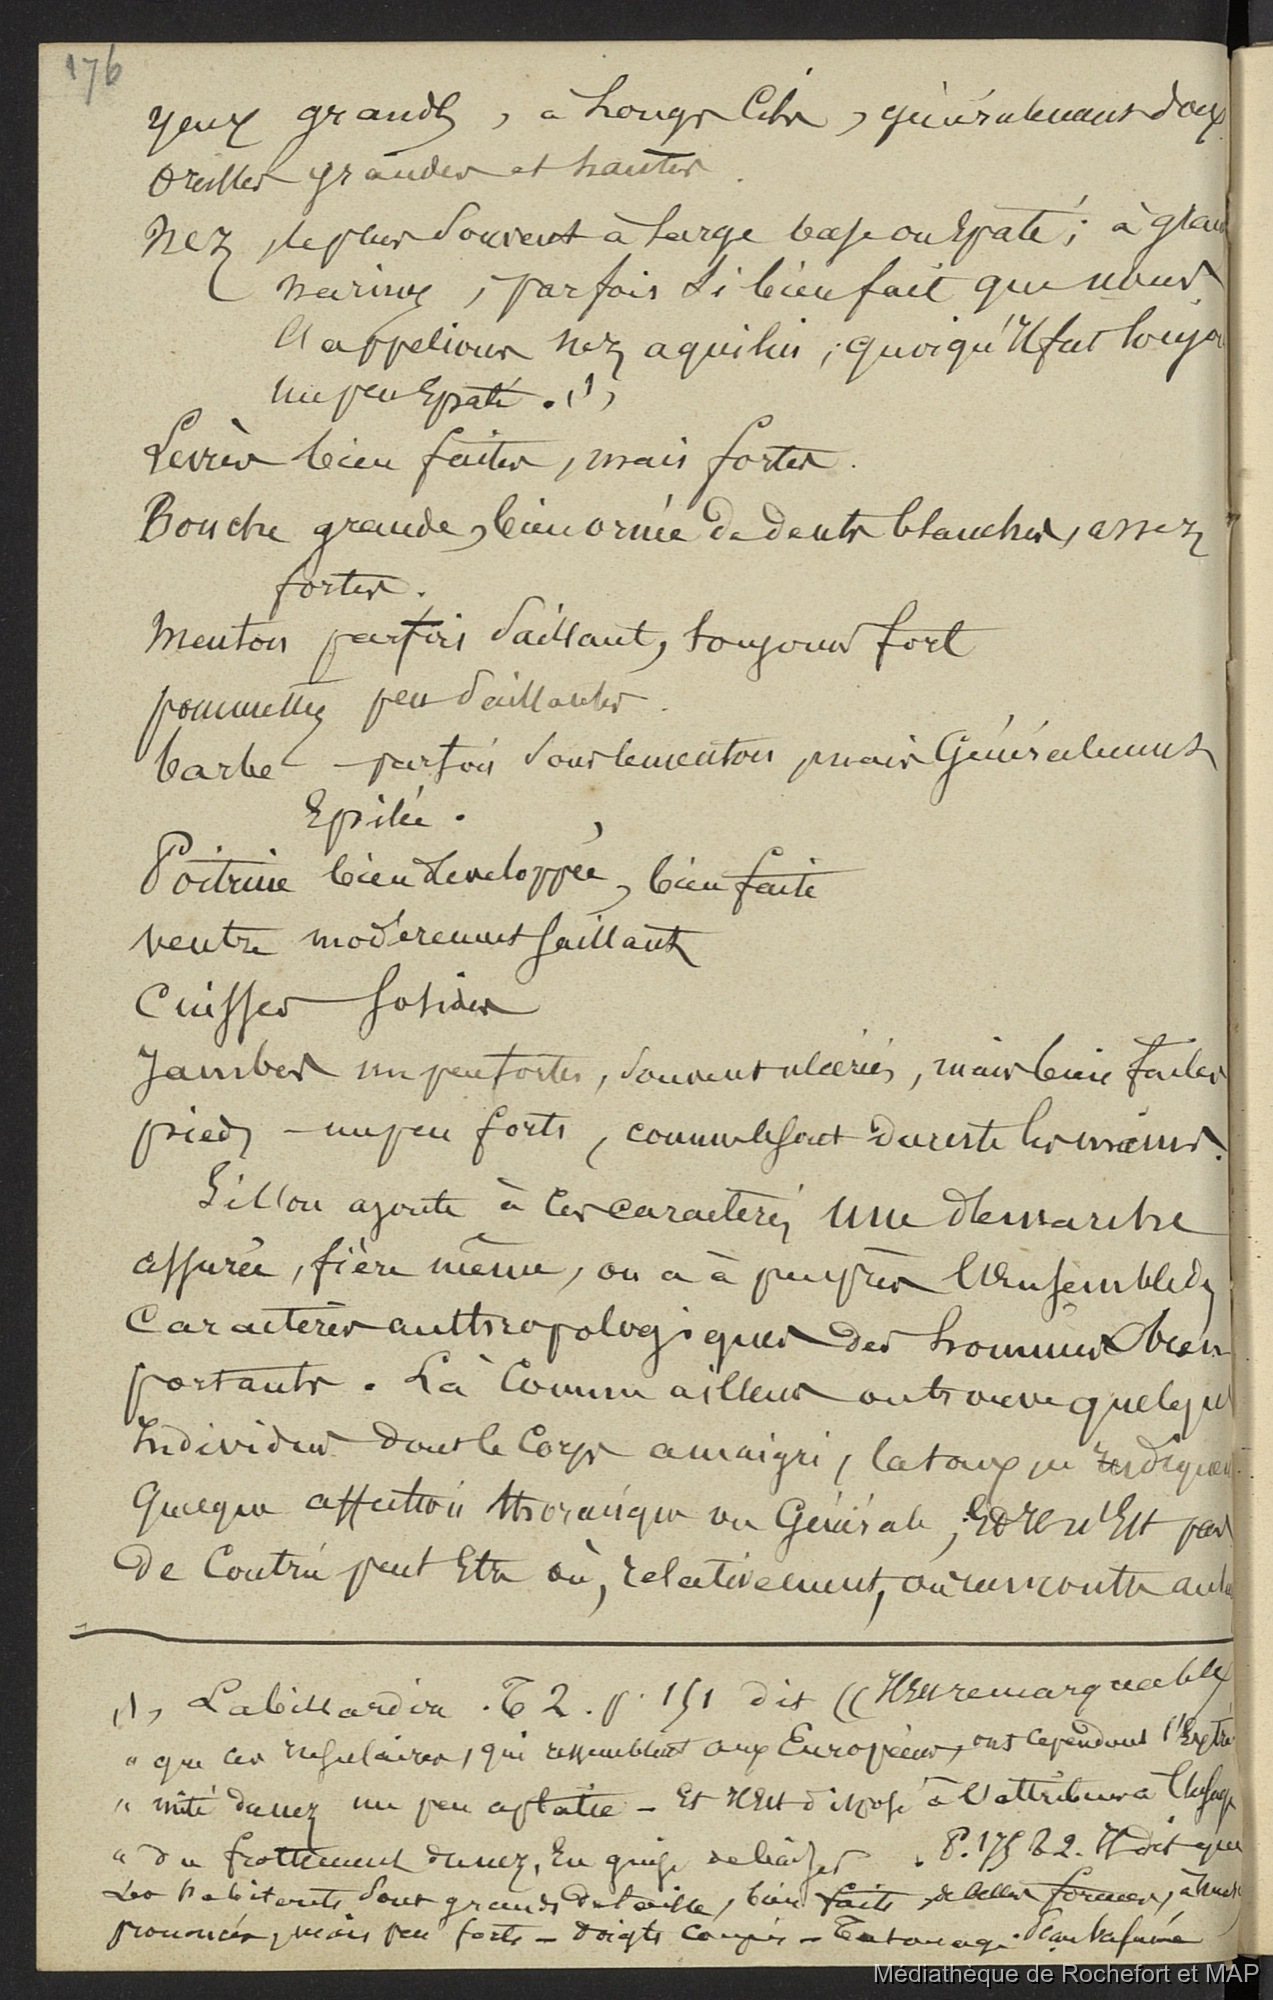 176
yeux grands, à longs cils, généralement doux
oreilles grandes et hautes.
Nez, le plus souvent à large base ou Epaté; à gran
narines, parfois si bien fait que nous
l'appelions nez aquilin, quoiqu'il fut toujou
un peu Epaté. (1)
Levres bien faites, mais fortes.
Bouche grande, bien ornée de dents blanches, assez
fortes.
Menton parfois saillant, toujours fort
pommettes peu saillantes.
barbe parfois sous le menton, mais Généralement
Epilée.
Poitrine bien developpée, bien faite
ventre moderement saillant
Cuisses solides
Jambes un peu fortes, souvent ulcérées, mais bien faites
pieds un peu forts, comme le sont du reste les mains.
Si l'on ajoute à ces caractères une demarche
assurée, fière même, on a à peu près l'ensemble des
Caractères anthropologiques des hommes bien
portants. Là comme ailleurs on trouve quelques
Individus dont le corps amaigri, la toux
quelque affection thoracique ou Générale, Et il n'Est pas
de Contrée peut Etre où, relativement, on rencontre
(1) Labillardière. T 2. p. 151 dit (( Il Est remarquable
" que ces insulaires, qui ressemblent aux Européens, ont cependant l'Extré
" mité du nez un peu aplatie - Et il Est disposé à l'attribuer à l'usage
" du frottement du nez, En guise de baiser. P. 175 T 2. Il dit que
Les habitants sont grands de taille, bien faits, de belles formes,
prononcées, mais peu forts - doigts coupés - Tatouage
Médiathèque de Rochefort et MAP